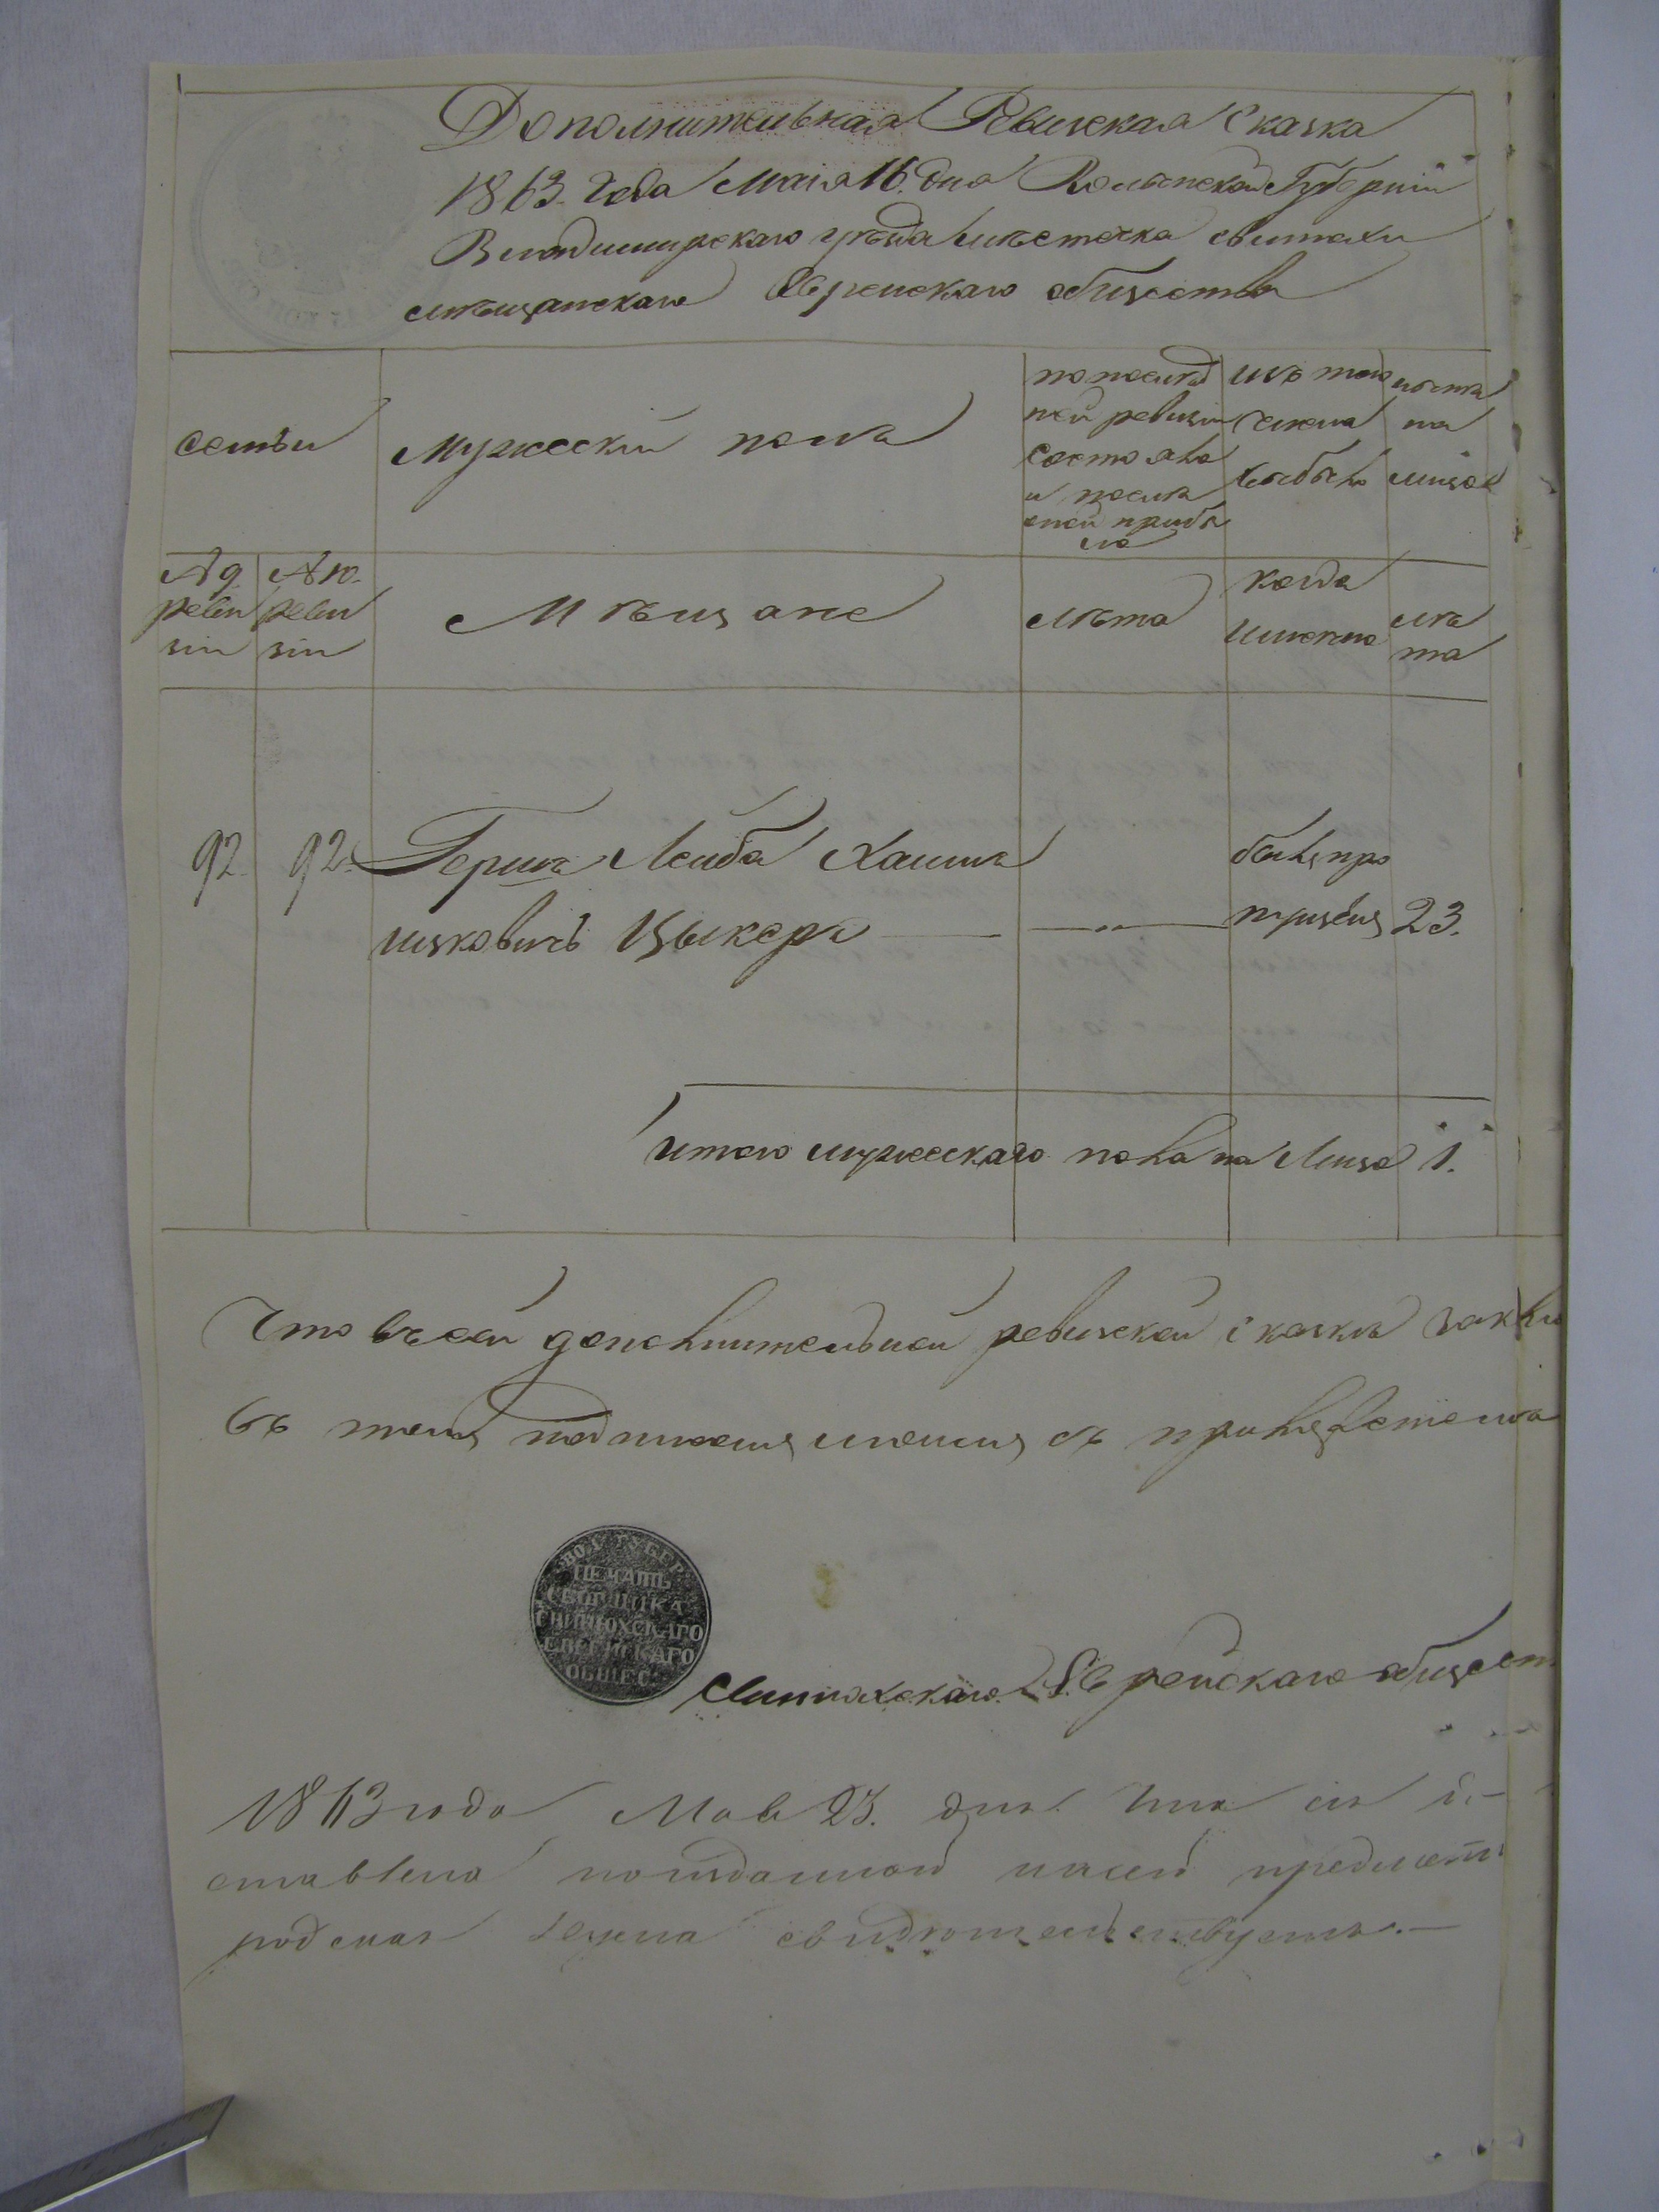 Дополнительная Ревизская Сказка
1863. Года Маія 16. дня Волынской Губерніи
Владимирскаго уѣзда мѣстечка свинюхи
мѣщанскаго Еврейскаго общества
семьи
Мужескій полъ
по послѣд
ней ревизіи
состояло
и послѣ
оной прибы
ло
изъ того
числа
выбыло
нынѣ
на
лицо
№ 9.
реви
зіи
№ 10.
реви
зіи
Мѣщане
лѣта
когда
именно
лѣ
та
92. 92. Гершъ Лейба Хаимъ
ицковичъ Цыкеръ
былъ про
пущенъ 23.
итого мужескаго пола на Лицо 1.
Что въ сей дополнительной ревизской сказкѣ
въ томъ
ВОЛ. ГУБЕР.
ПЕЧАТЬ
СБОРЩИКА
СВИНЮХСКАГО
ЕВРЕЙСКАГО
ОБЩЕС.
Свинюхскаго Еврейскаго общест
1863 года Мая 23. дня. Что сія
ставлена
свидѣтельствуетъ.